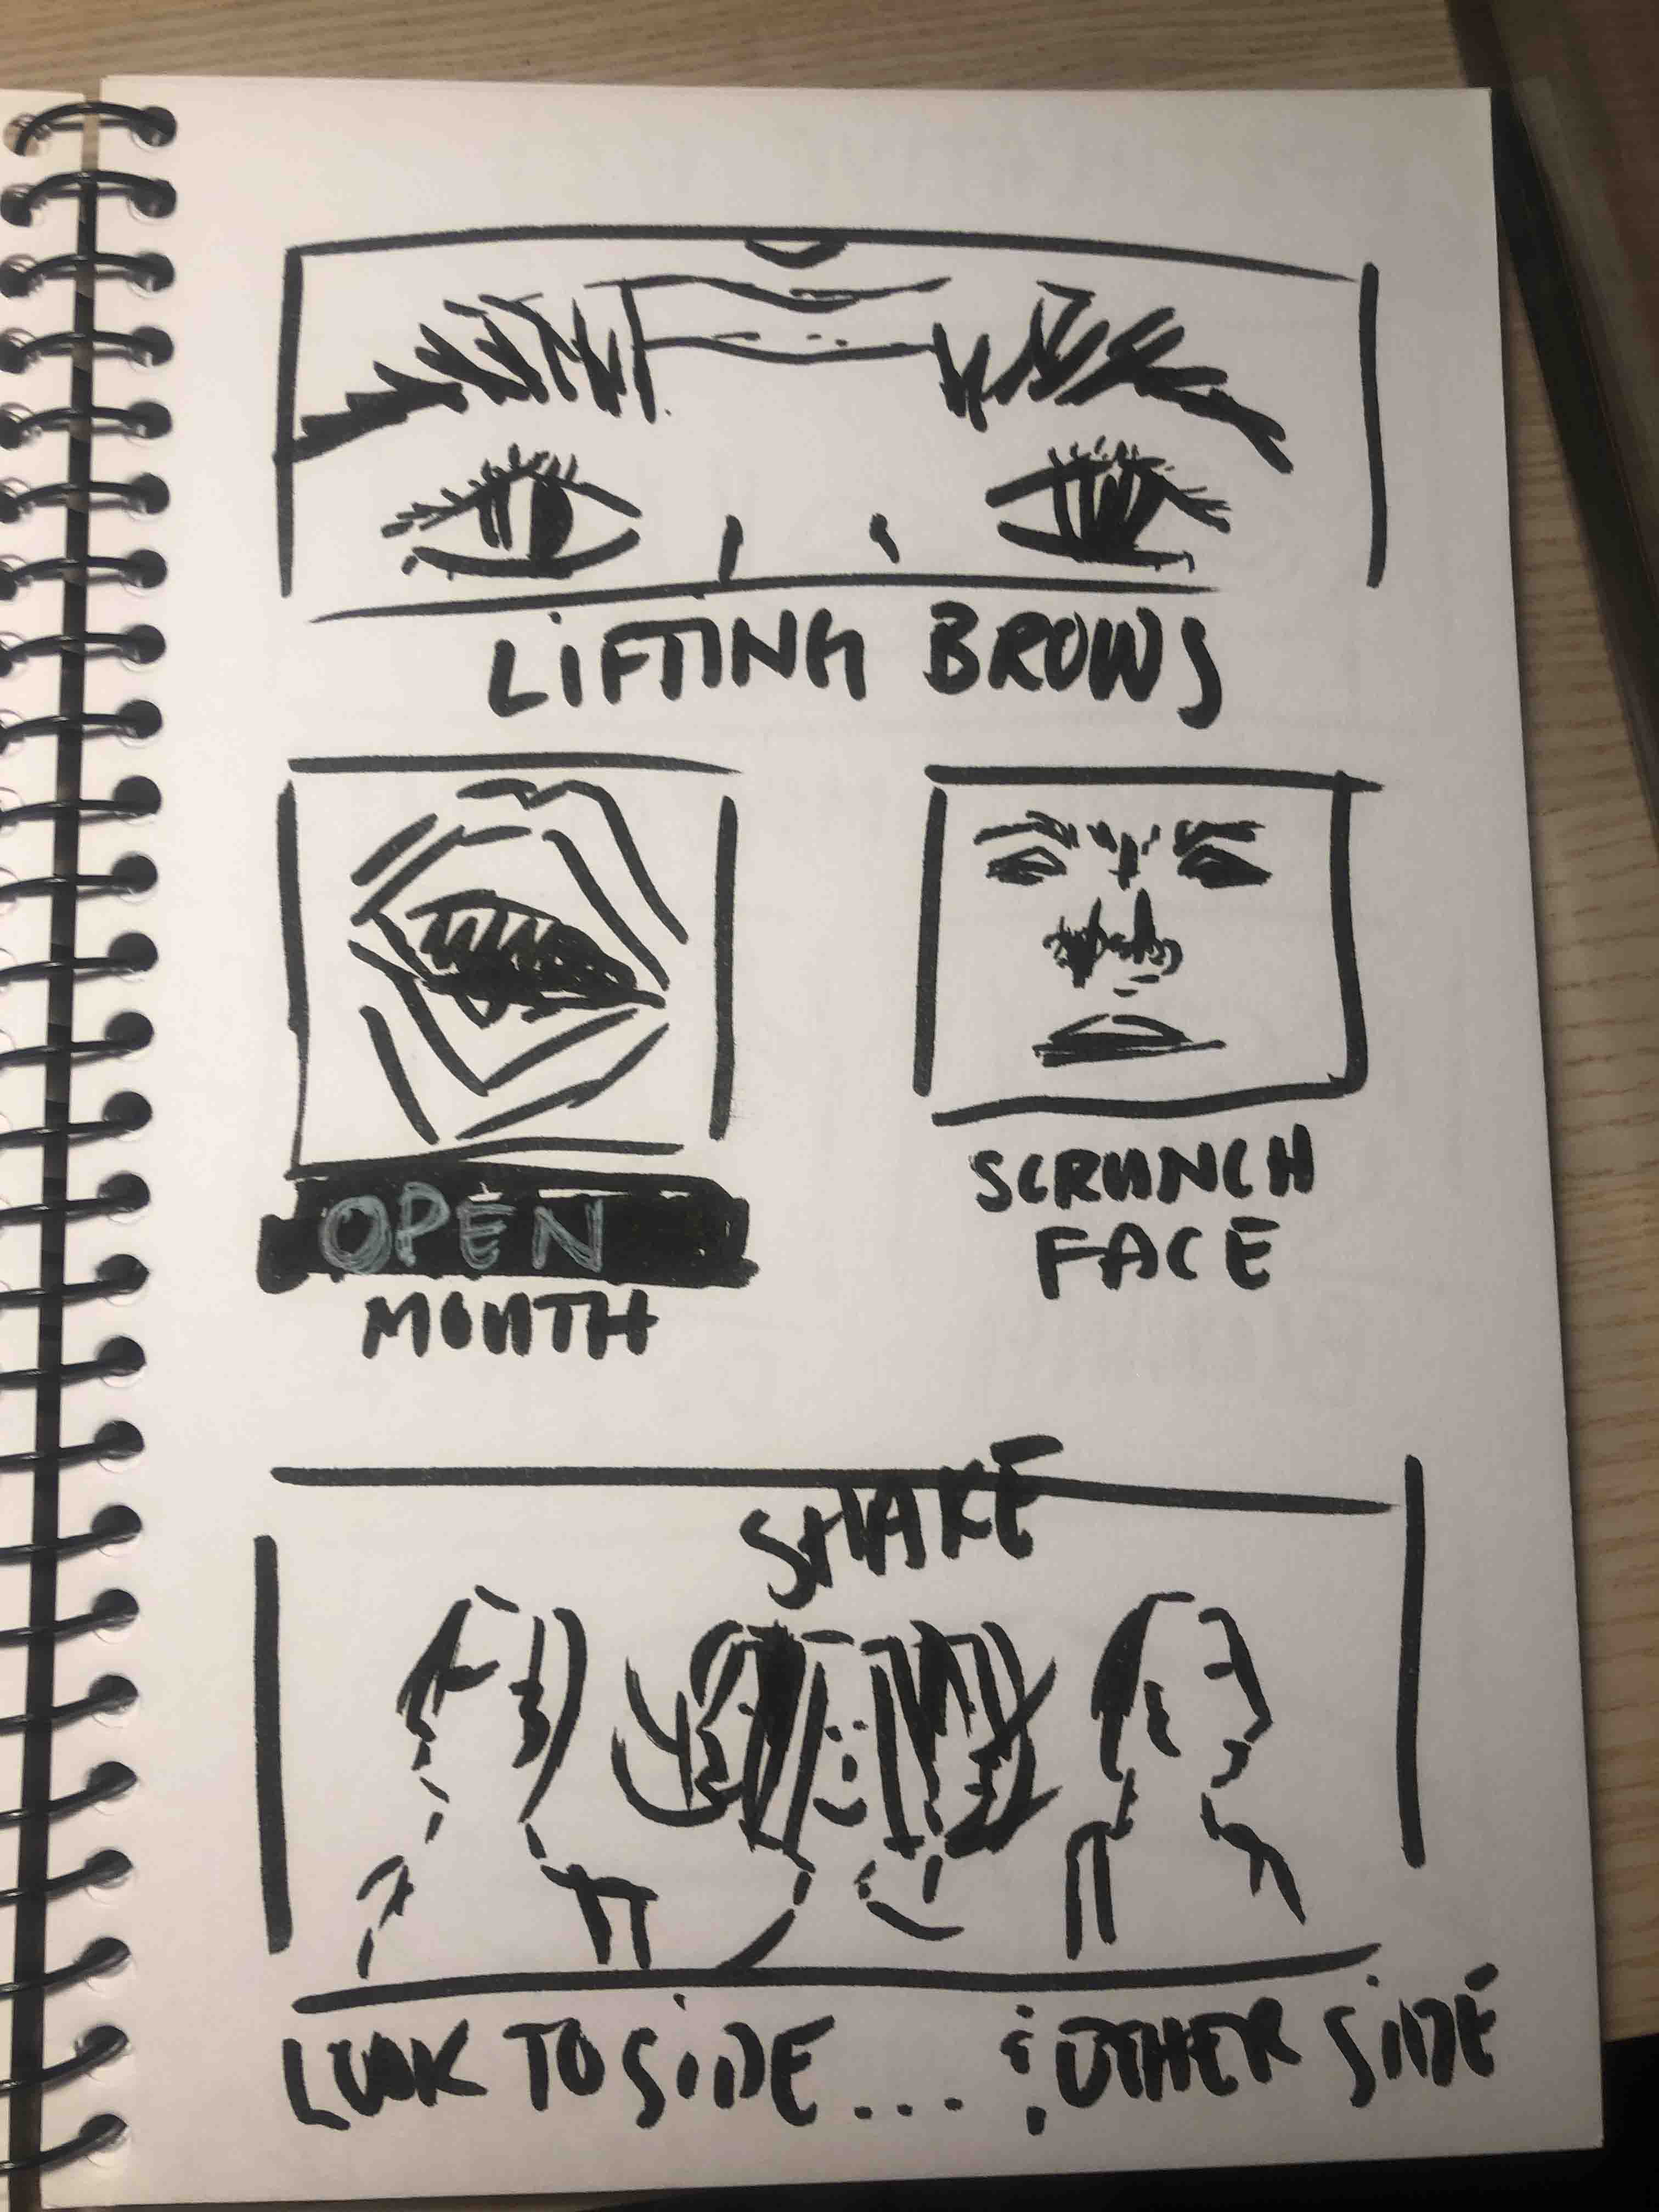 LiFTING BROWS
OPEN
MOUTH
SCRUNCH
FACE
SHAKE
LOOK TO SiDE... & OTHER SiDE